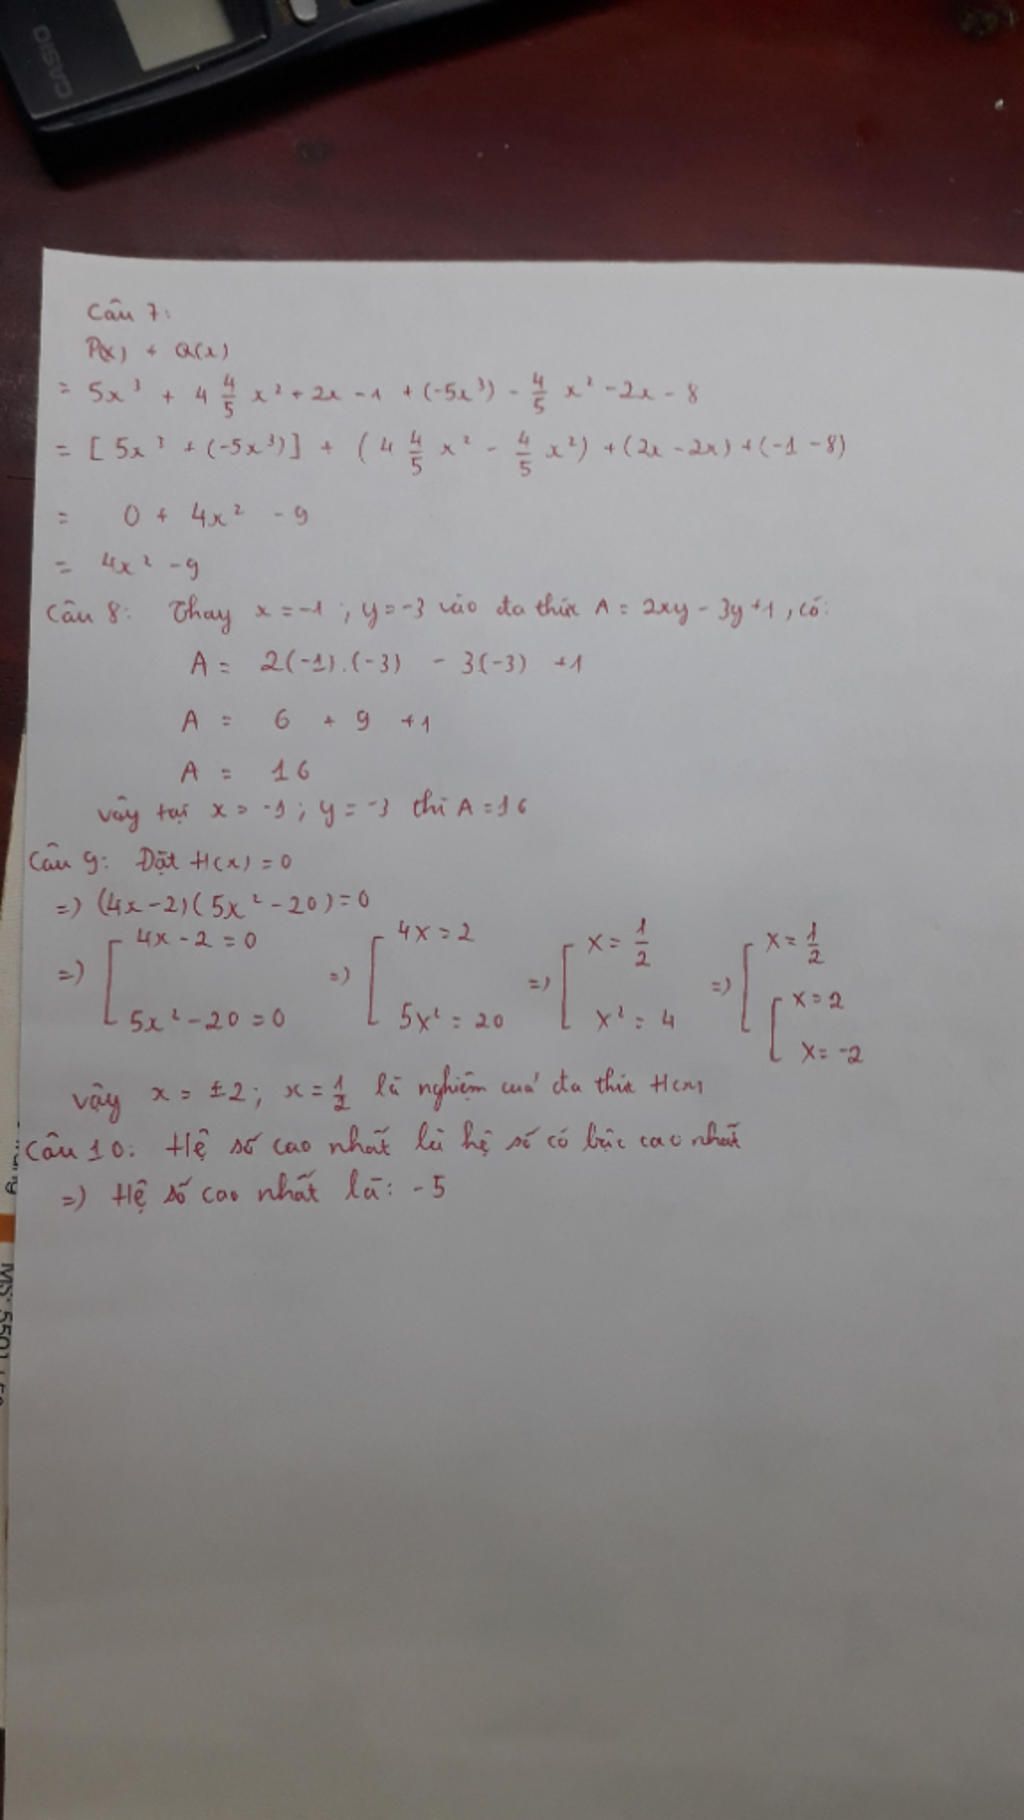 CASIO
Câu 7:
P(x) + Q(x)
= 5x³ + 4 4/5 x² + 2x - 1 + (-5x³) - 4/5 x² - 2x - 8
= [ 5x³ + (-5x³)] + (4 4/5 x² - 4/5 x²) + (2x - 2x) + (-1 - 8)
= 0 + 4x² - 9
= 4x² - 9
Câu 8: Thay x = -1 ; y = -3 vào đa thức A = 2xy - 3y + 1 , có:
A = 2(-1).(-3) - 3(-3) + 1
A = 6 + 9 + 1
A = 16
vậy tại x = -1 ; y = -3 thì A = 16
Câu 9: Đặt H(x) = 0
=) (4x - 2)(5x² - 20) = 0
=) [ 4x - 2 = 0 =) [ 4x = 2 =) [ x = 1/2 =) [ x = 1/2
5x² - 20 = 0 5x² = 20 x² = 4 [ x = 2
x = -2
vậy x = ±2 ; x = 1/2 là nghiệm cuả đa thức H(x)
Câu 10: Hệ số cao nhất là hệ số có bậc cao nhất
=) Hệ số cao nhất là: -5